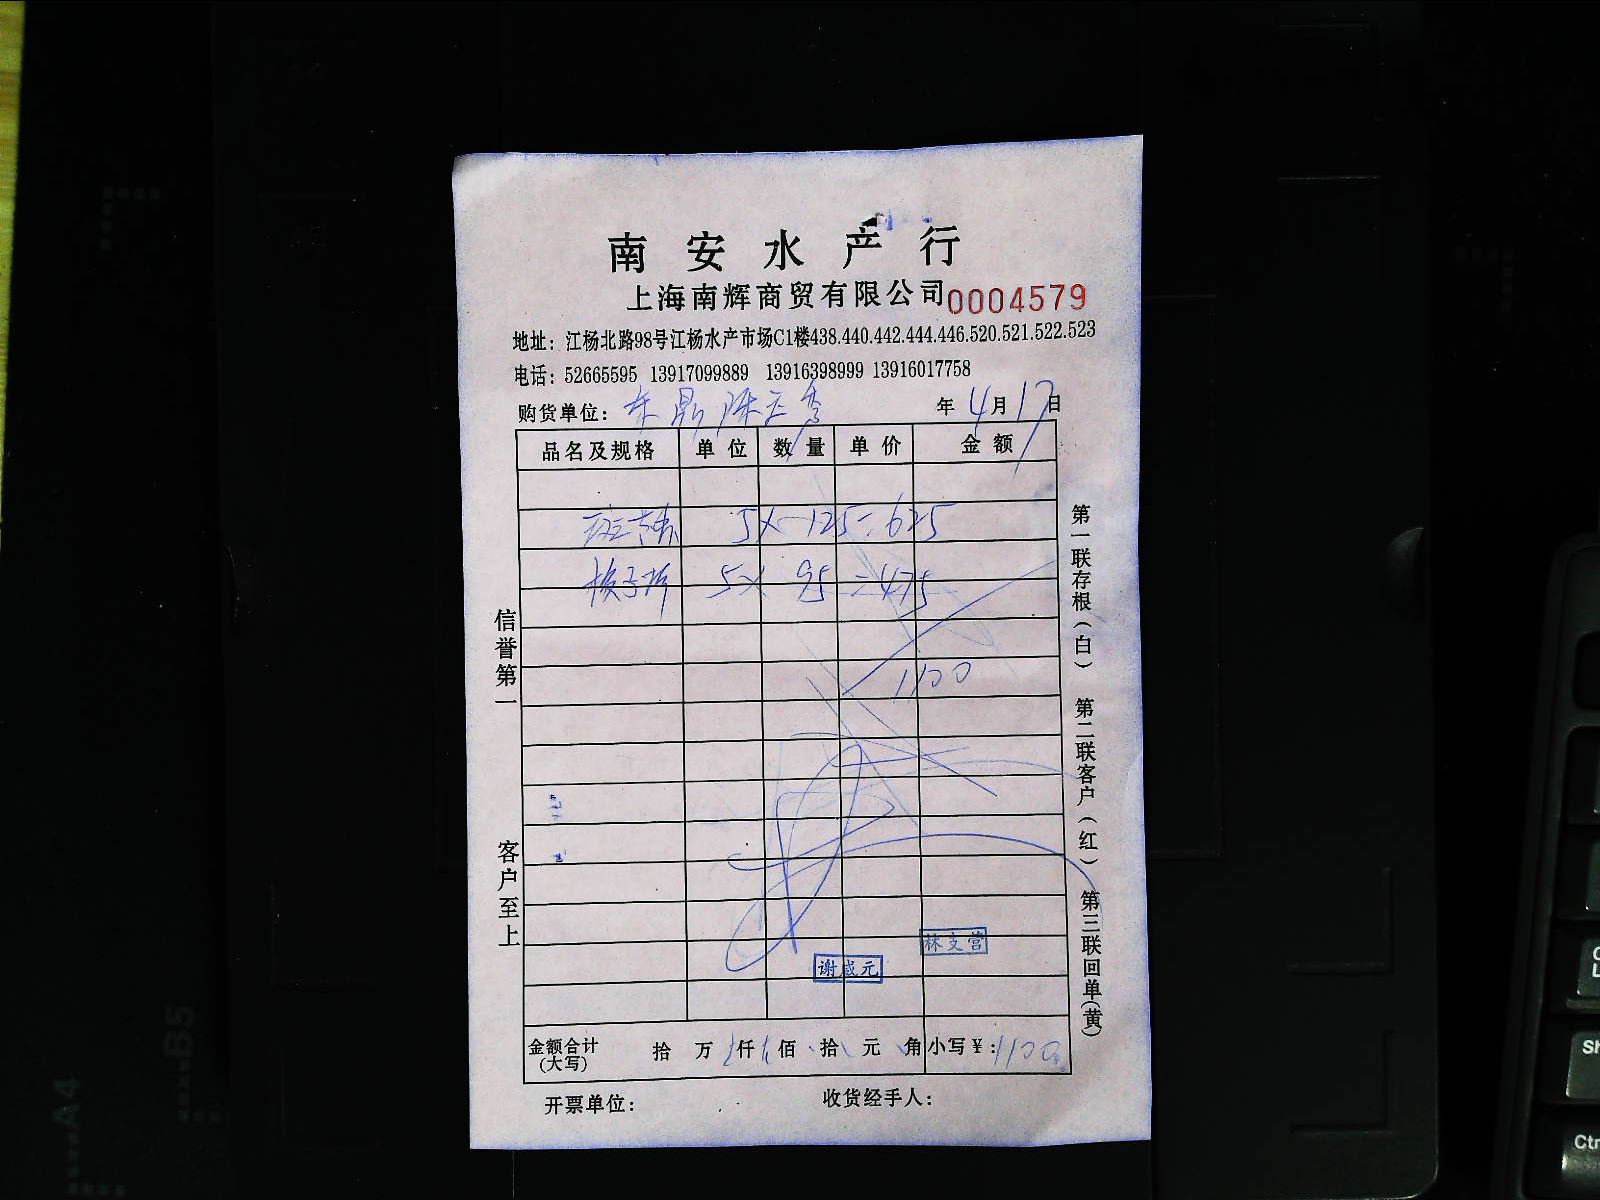 南安水产行
上海南辉商贸有限公司 0004579
地址：江杨北路98号江杨水产市场C1楼438.440.442.444.446.520.521.522.523
电话：52665595 13917099889 13916398999 13916017758
购货单位： 年 4月17日
品名及规格 单位 数量 单价 金额
5×125=625
5×95=475
1100
信誉第一
客户至上
第一联存根（白） 第二联客户（红） 第三联回单（黄）
林文营
谢咸元
金额合计（大写） 拾 万 仟 佰 拾 元 角 小写￥：1100
开票单位： 收货经手人：
A4
B5